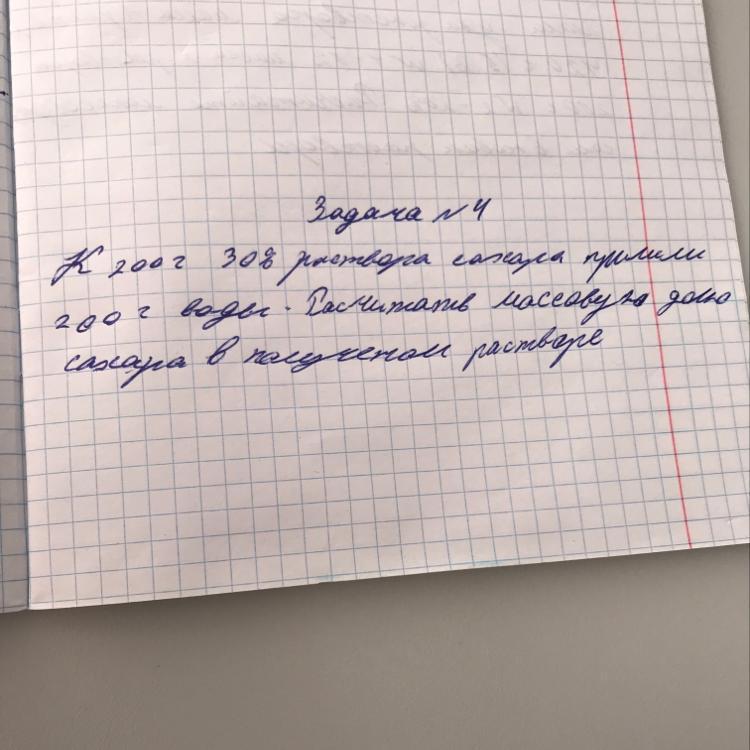 Задача № 4
К 200 г 30% раствора сахара прилили
200 г воды. Расчитать массовую долю
сахара в полученом растворе